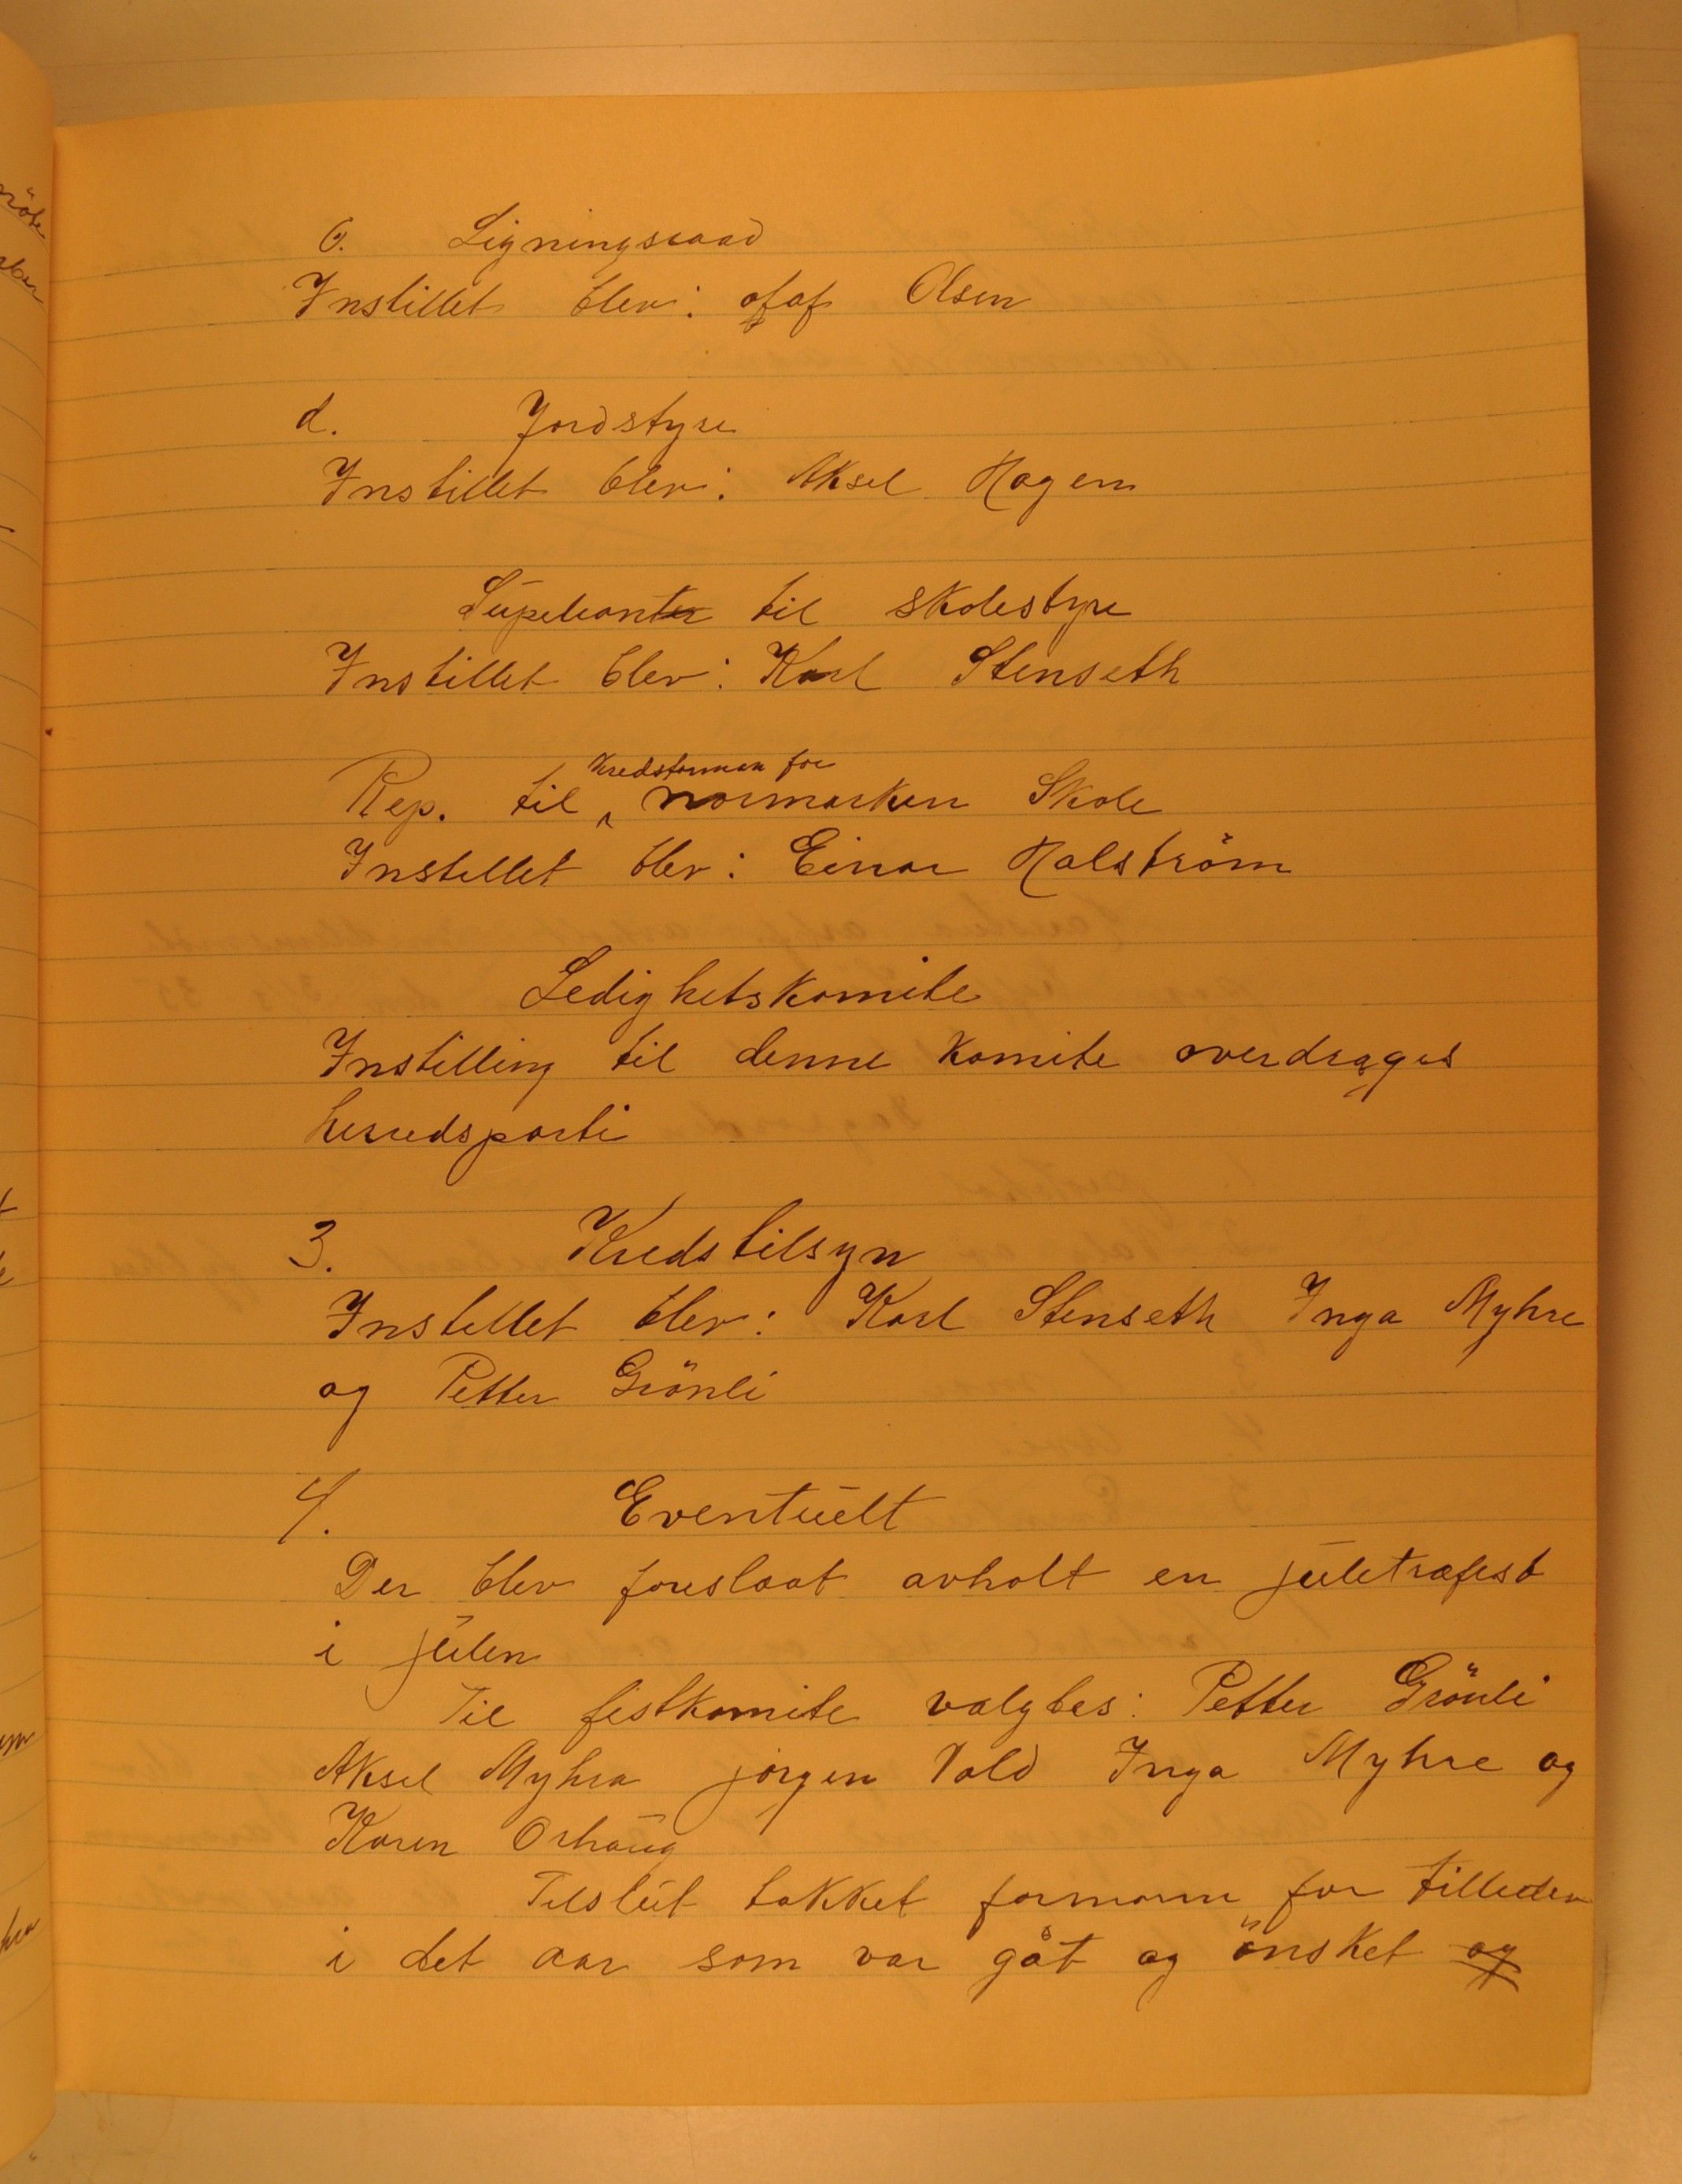 C. Ligningsraad
Instillet blev: Olaf Olsen
d. Jordstyre
Instillet blev: Aksel Hagen
Supeleanter til skolestyre
Instillet blev: Karl Stenseth
Kredsforman for
Rep. til normarken Skole
Instillet blev: Einar Halström
Ledighetskomite
Instilling til denne komite overdrages
herredsparti
3. Kredstilsyn
Instillet blev: Karl Stenseth Inga Myhre
og Petter Grönli
4. Eventuelt
Der blev foreslaat avholt en juletræfest
i julen
Til festkomite valgtes: Petter Grönli
Aksel Myhra jörgen Vold Inga Myhre og
Karen Orhaug
Tilslut takket formann for tilleden
i det aar som var gåt og önsket og